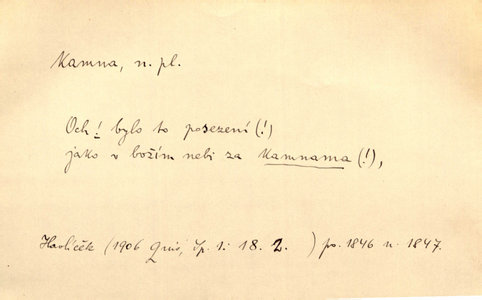 Kamna, n. pl.
Och! bylo to posezení (!)
jako v božím nebi za kamnama (!),
Havlíček (1906 Quis, Sp. 1: 18. 2. ) po. 1846 n. 1847.